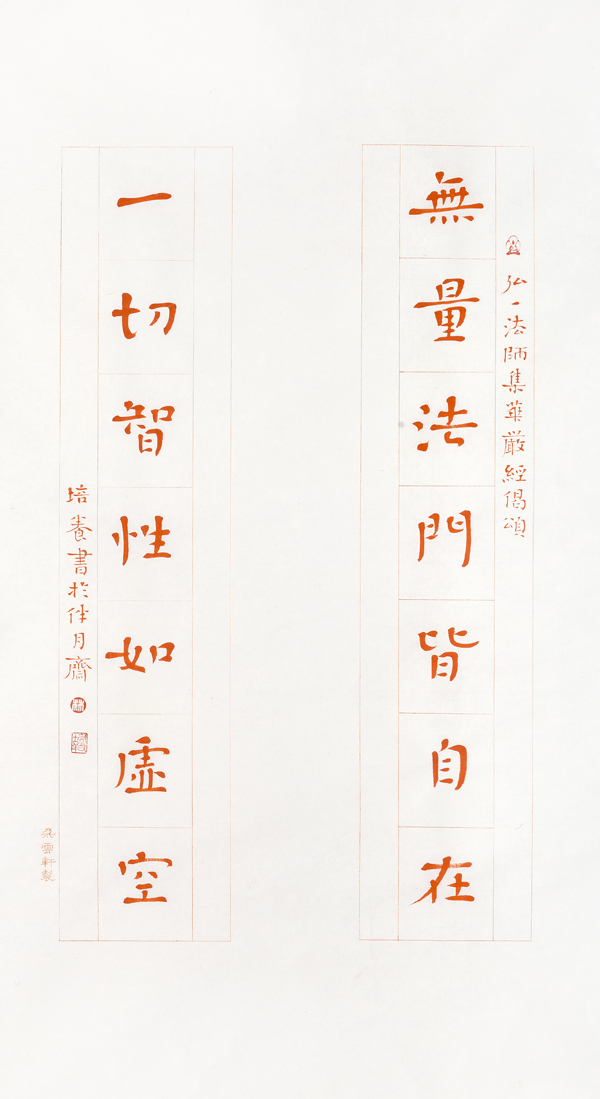 弘一法師集華嚴經偈頌
無量法門皆自在
一切智性如虛空
培養書於伴月齋
朵雲軒製